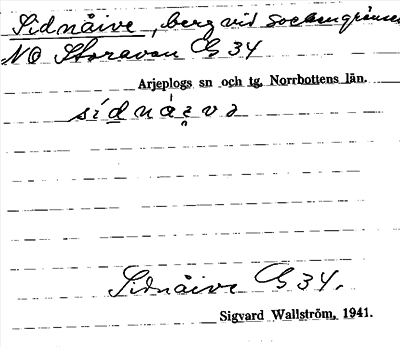 Sidnåive, berg vid sockengränsen
NO Storavan G 34
Arjeplogs sn och tg, Norrbottens län.
Sidnåive G 34.
Sigvard Wallström, 1941.